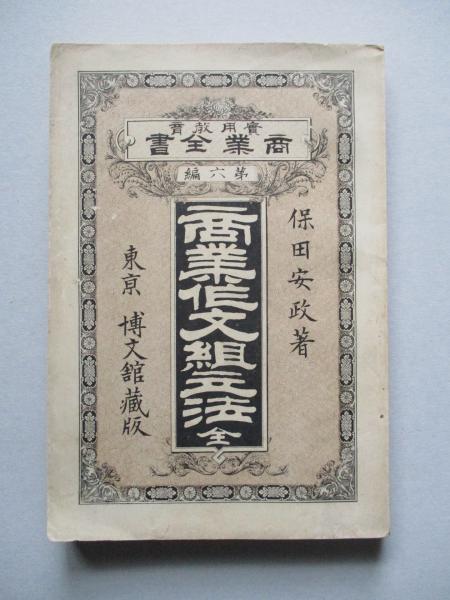 實用教育
商業全書
第六編
保田安政著
商業作文組立法 全
東京 博文館藏版